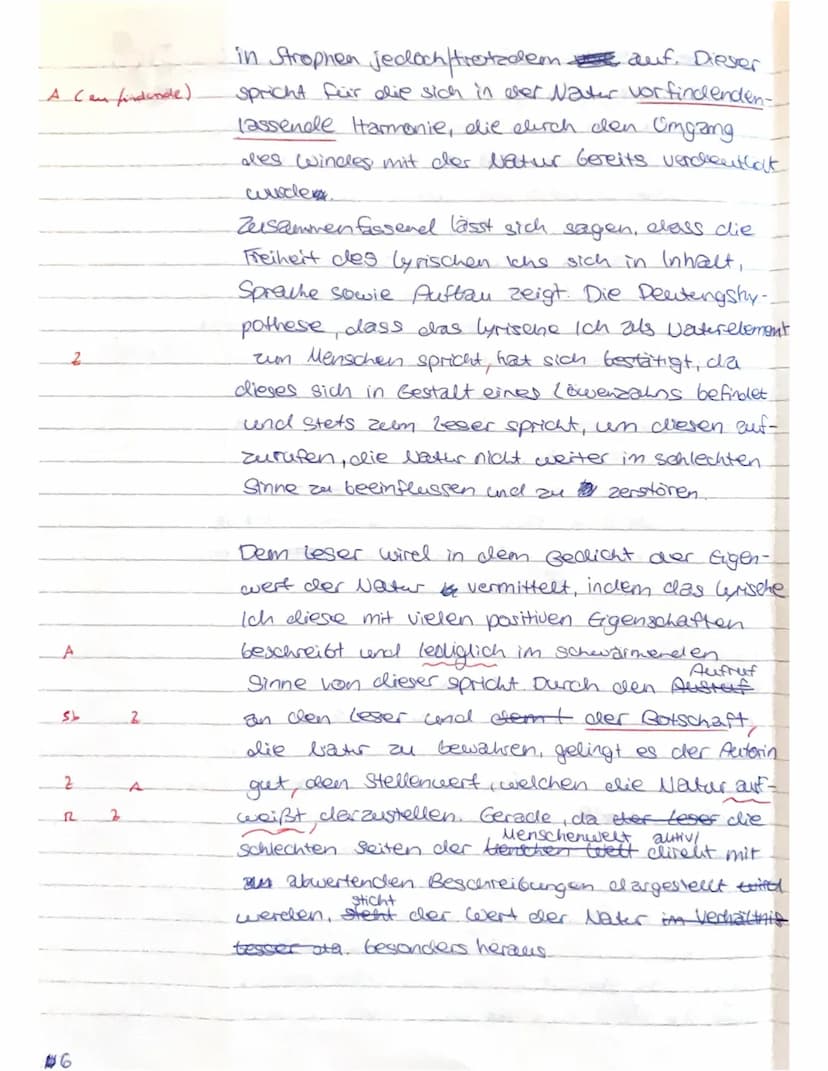 in Strophen jedoch/trotzdem auf. Dieser
A (zu findende) spricht für die sich in der Natur vorfindenden-
lassende Harmonie, die durch den Umgang
des Windes mit der Natur bereits verdeutlicht
wurde.
Zusammenfassend lässt sich sagen, dass die
Freiheit des lyrischen Ichs sich in Inhalt,
Sprache sowie Aufbau zeigt. Die Deutungshy-
pothese, dass das lyrische Ich als Naturelement
Z zum Menschen spricht, hat sich bestätigt, da
dieses sich in Gestalt eines Löwenzahns befindet
und stets zum Leser spricht, um diesen auf-
zurufen, die Natur nicht weiter im schlechten
Sinne zu beeinflussen und zu zerstören.
Dem Leser wird in dem Gedicht der Eigen-
wert der Natur vermittelt, indem das lyrische
Ich diese mit vielen positiven Eigenschaften
A beschreibt und lediglich im schwärmenden
Aufruf
Sinne von dieser spricht. Durch den Ausruf
Sb Z an den Leser und demt der Botschaft,
die Natur zu bewahren, gelingt es der Autorin
Z A gut, den Stellenwert, welchen die Natur auf-
R Z weißt, darzustellen. Gerade, da der Leser die
Menschenwelt aktiv/
schlechten Seiten der Menschen Welt direkt mit
abwertenden Beschreibungen dargestellt wird
sticht
werden, steht der Wert der Natur im Verhältnis
besser da. besonders heraus.
6